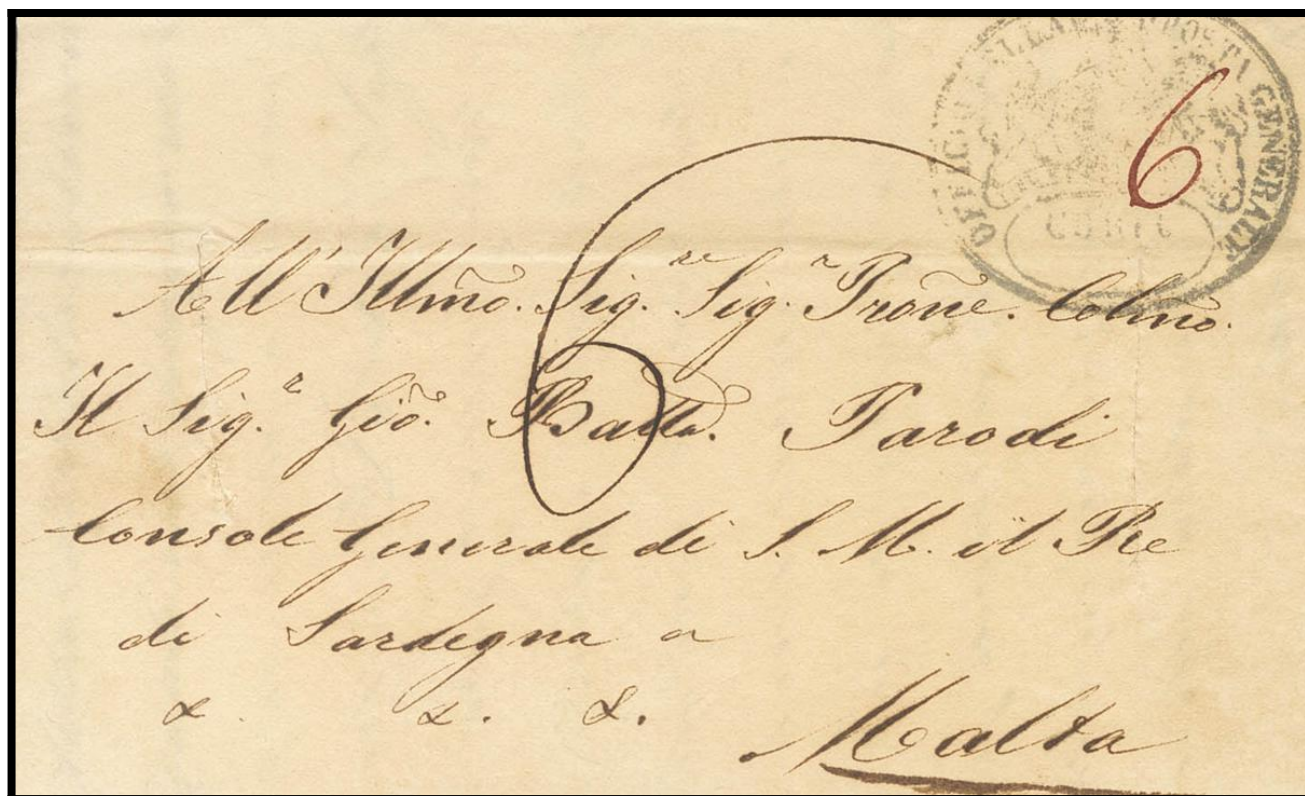 GENERALE
CORFÙ
6
6
All' Illmo. Sig.re Sig.r Prone. Colmo.
Il Sig.r Gio. Batta. Parodi
Console Generale di S. M. il Re
di Sardegna a
&. &. &.
Malta